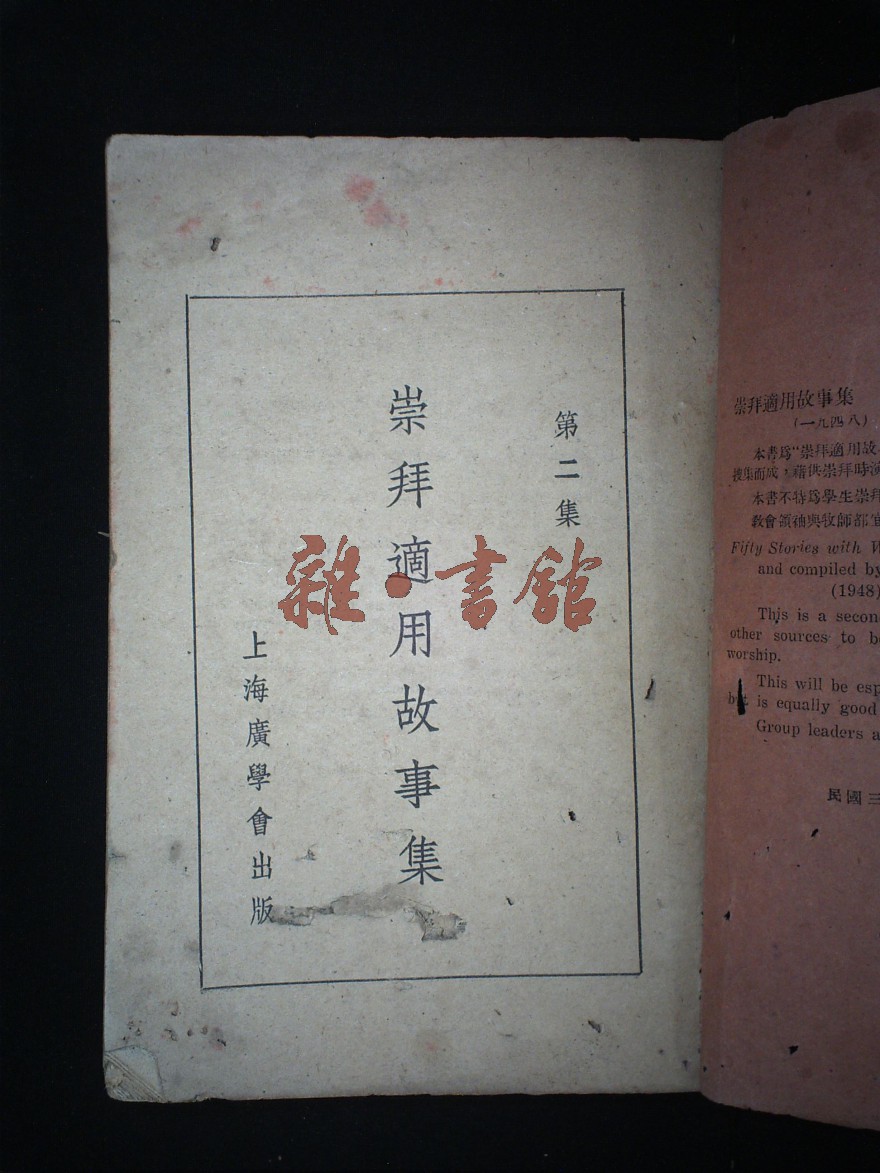 第二集
崇拜適用故事集
上海廣學會出版
雜·書館
崇拜適用故事集
(一九四八)
本書爲“崇拜適用故
搜集而成，藉供崇拜時演
本書不特爲學生崇拜
教會領袖與牧師都宜
Fifty Stories with W
and compiled by
(1948)
This is a secon
other sources to be
worship.
This will be esp
but is equally good
Group leaders a
民國三